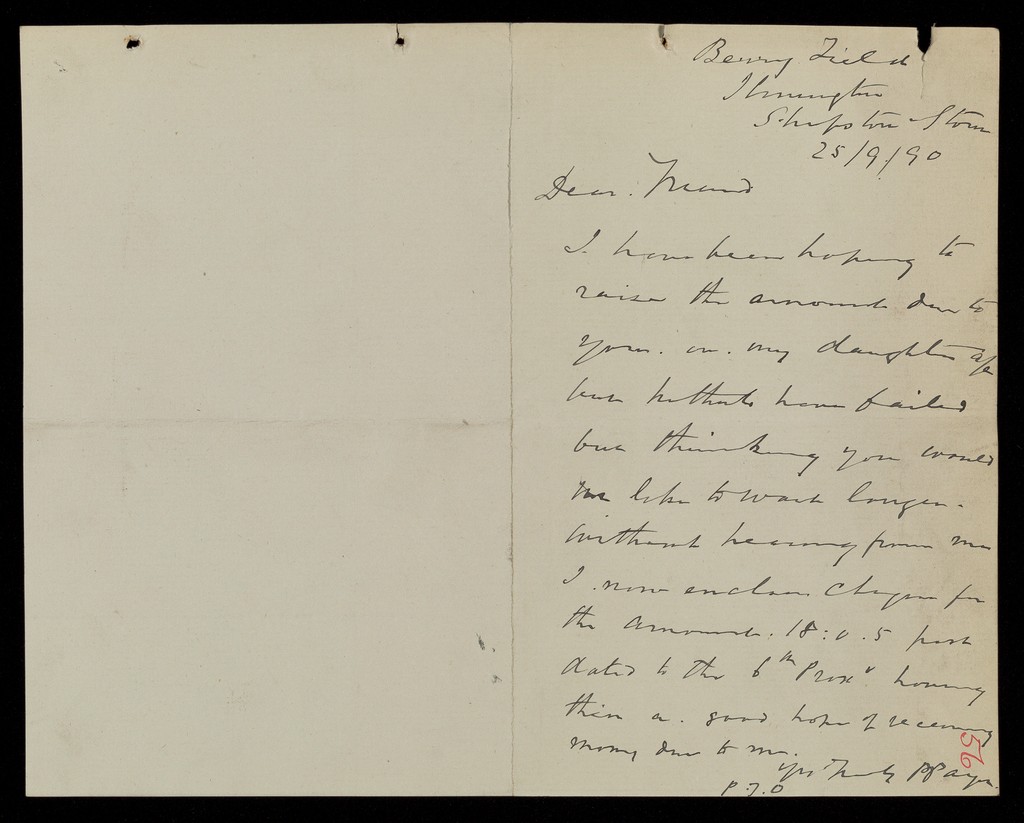 Berry Field
Ilmington
Shipston Stour
25/9/90
Dear Friend
I have been hoping to
raise the amount due to
you. on. my daughter a/c
but hitherto have failed
but thinking you would
not like to wait longer.
without hearing from me
I now enclose cheque for
the amount. 18:0.5 post
dated to the 6th Proxo having
then a. good hope of receiving
money due to me.
Yrs Truly
P.T.O
56